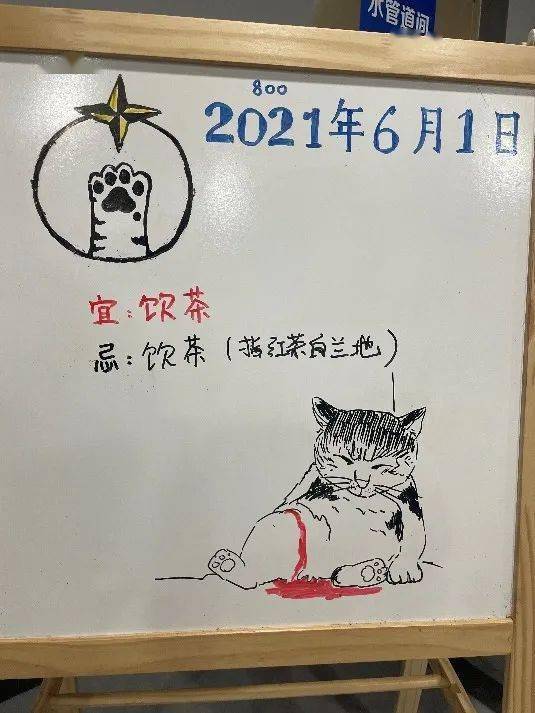 水管道间
800
2021年6月1日
宜：饮茶
忌：饮茶（指红茶白兰地）